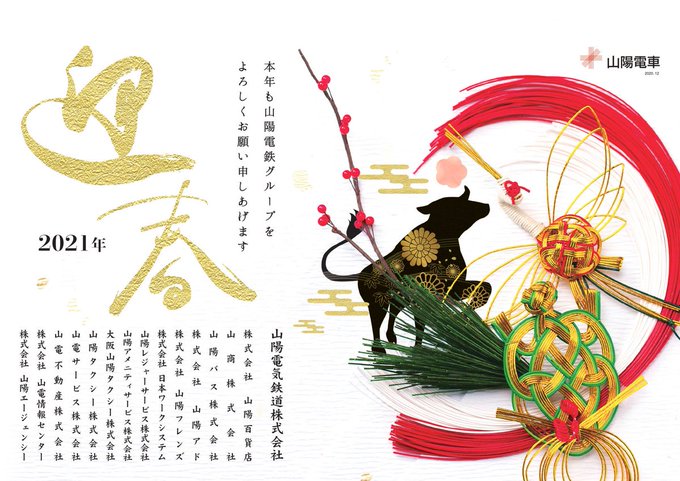 迎春
2021年
本年も山陽電鉄グループを
よろしくお願い申しあげます
山陽電車
2020.12
山陽電気鉄道株式会社
株式会社 山陽百貨店
山商株式会社
山陽バス株式会社
株式会社 山陽アド
株式会社 山陽フレンズ
株式会社 日本ワークシステム
山陽レジャーサービス株式会社
山陽アメニティサービス株式会社
大阪山陽タクシー株式会社
山陽タクシー株式会社
山電サービス株式会社
山電不動産株式会社
株式会社 山電情報センター
株式会社 山陽エージェンシー